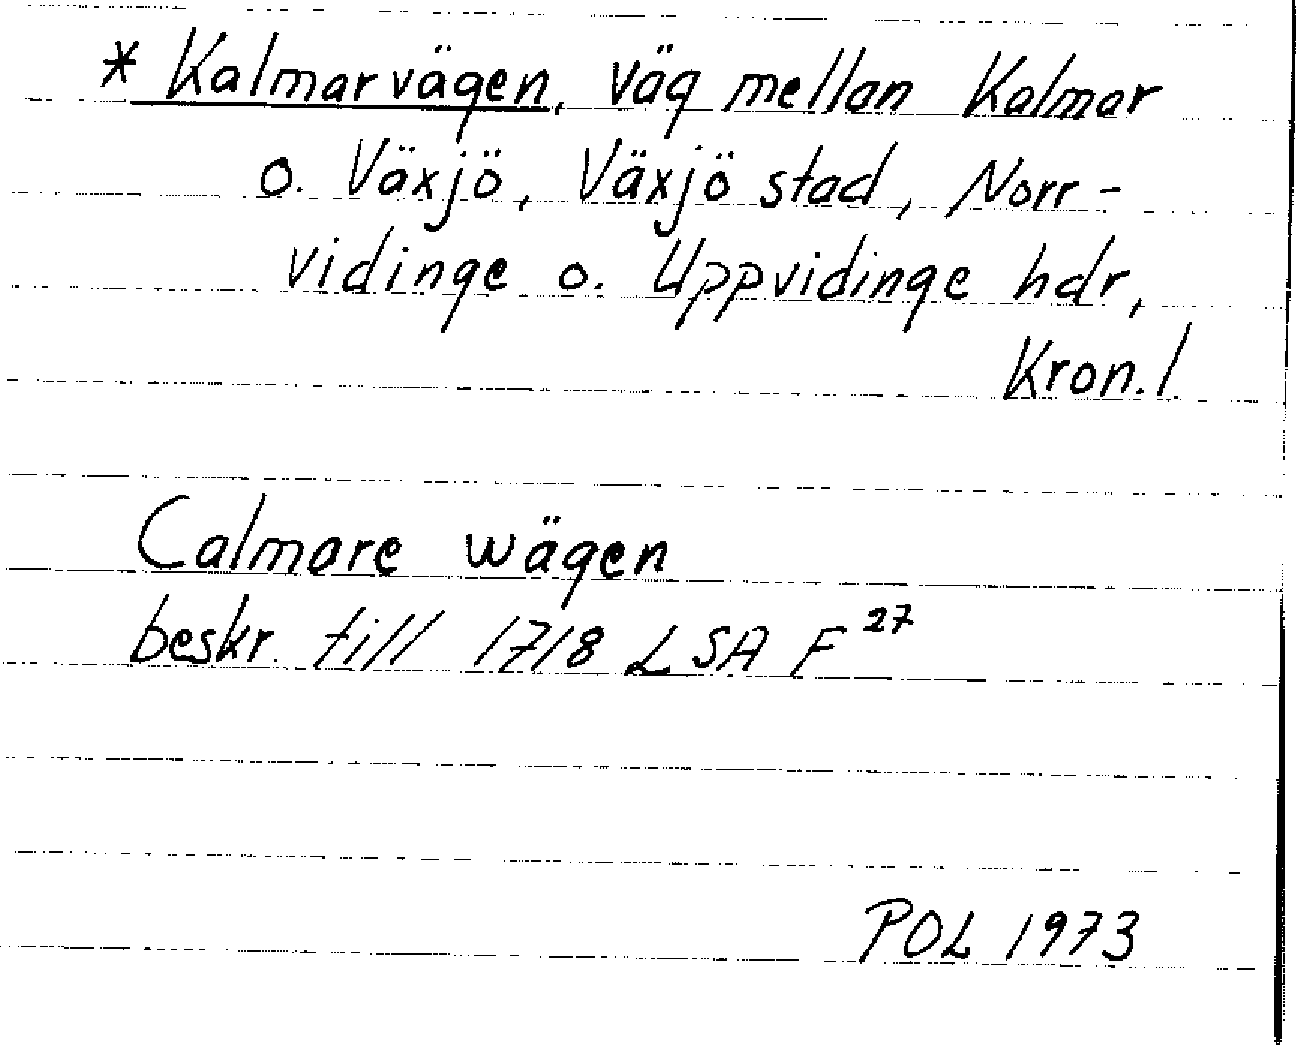 * Kalmarvägen, väg mellan Kalmar
o. Växjö, Växjö stad, Norr-
vidinge o. Uppvidinge hdr,
Kron.l.
Calmare wägen
beskr. till 1718 LSA F 27
POL 1973